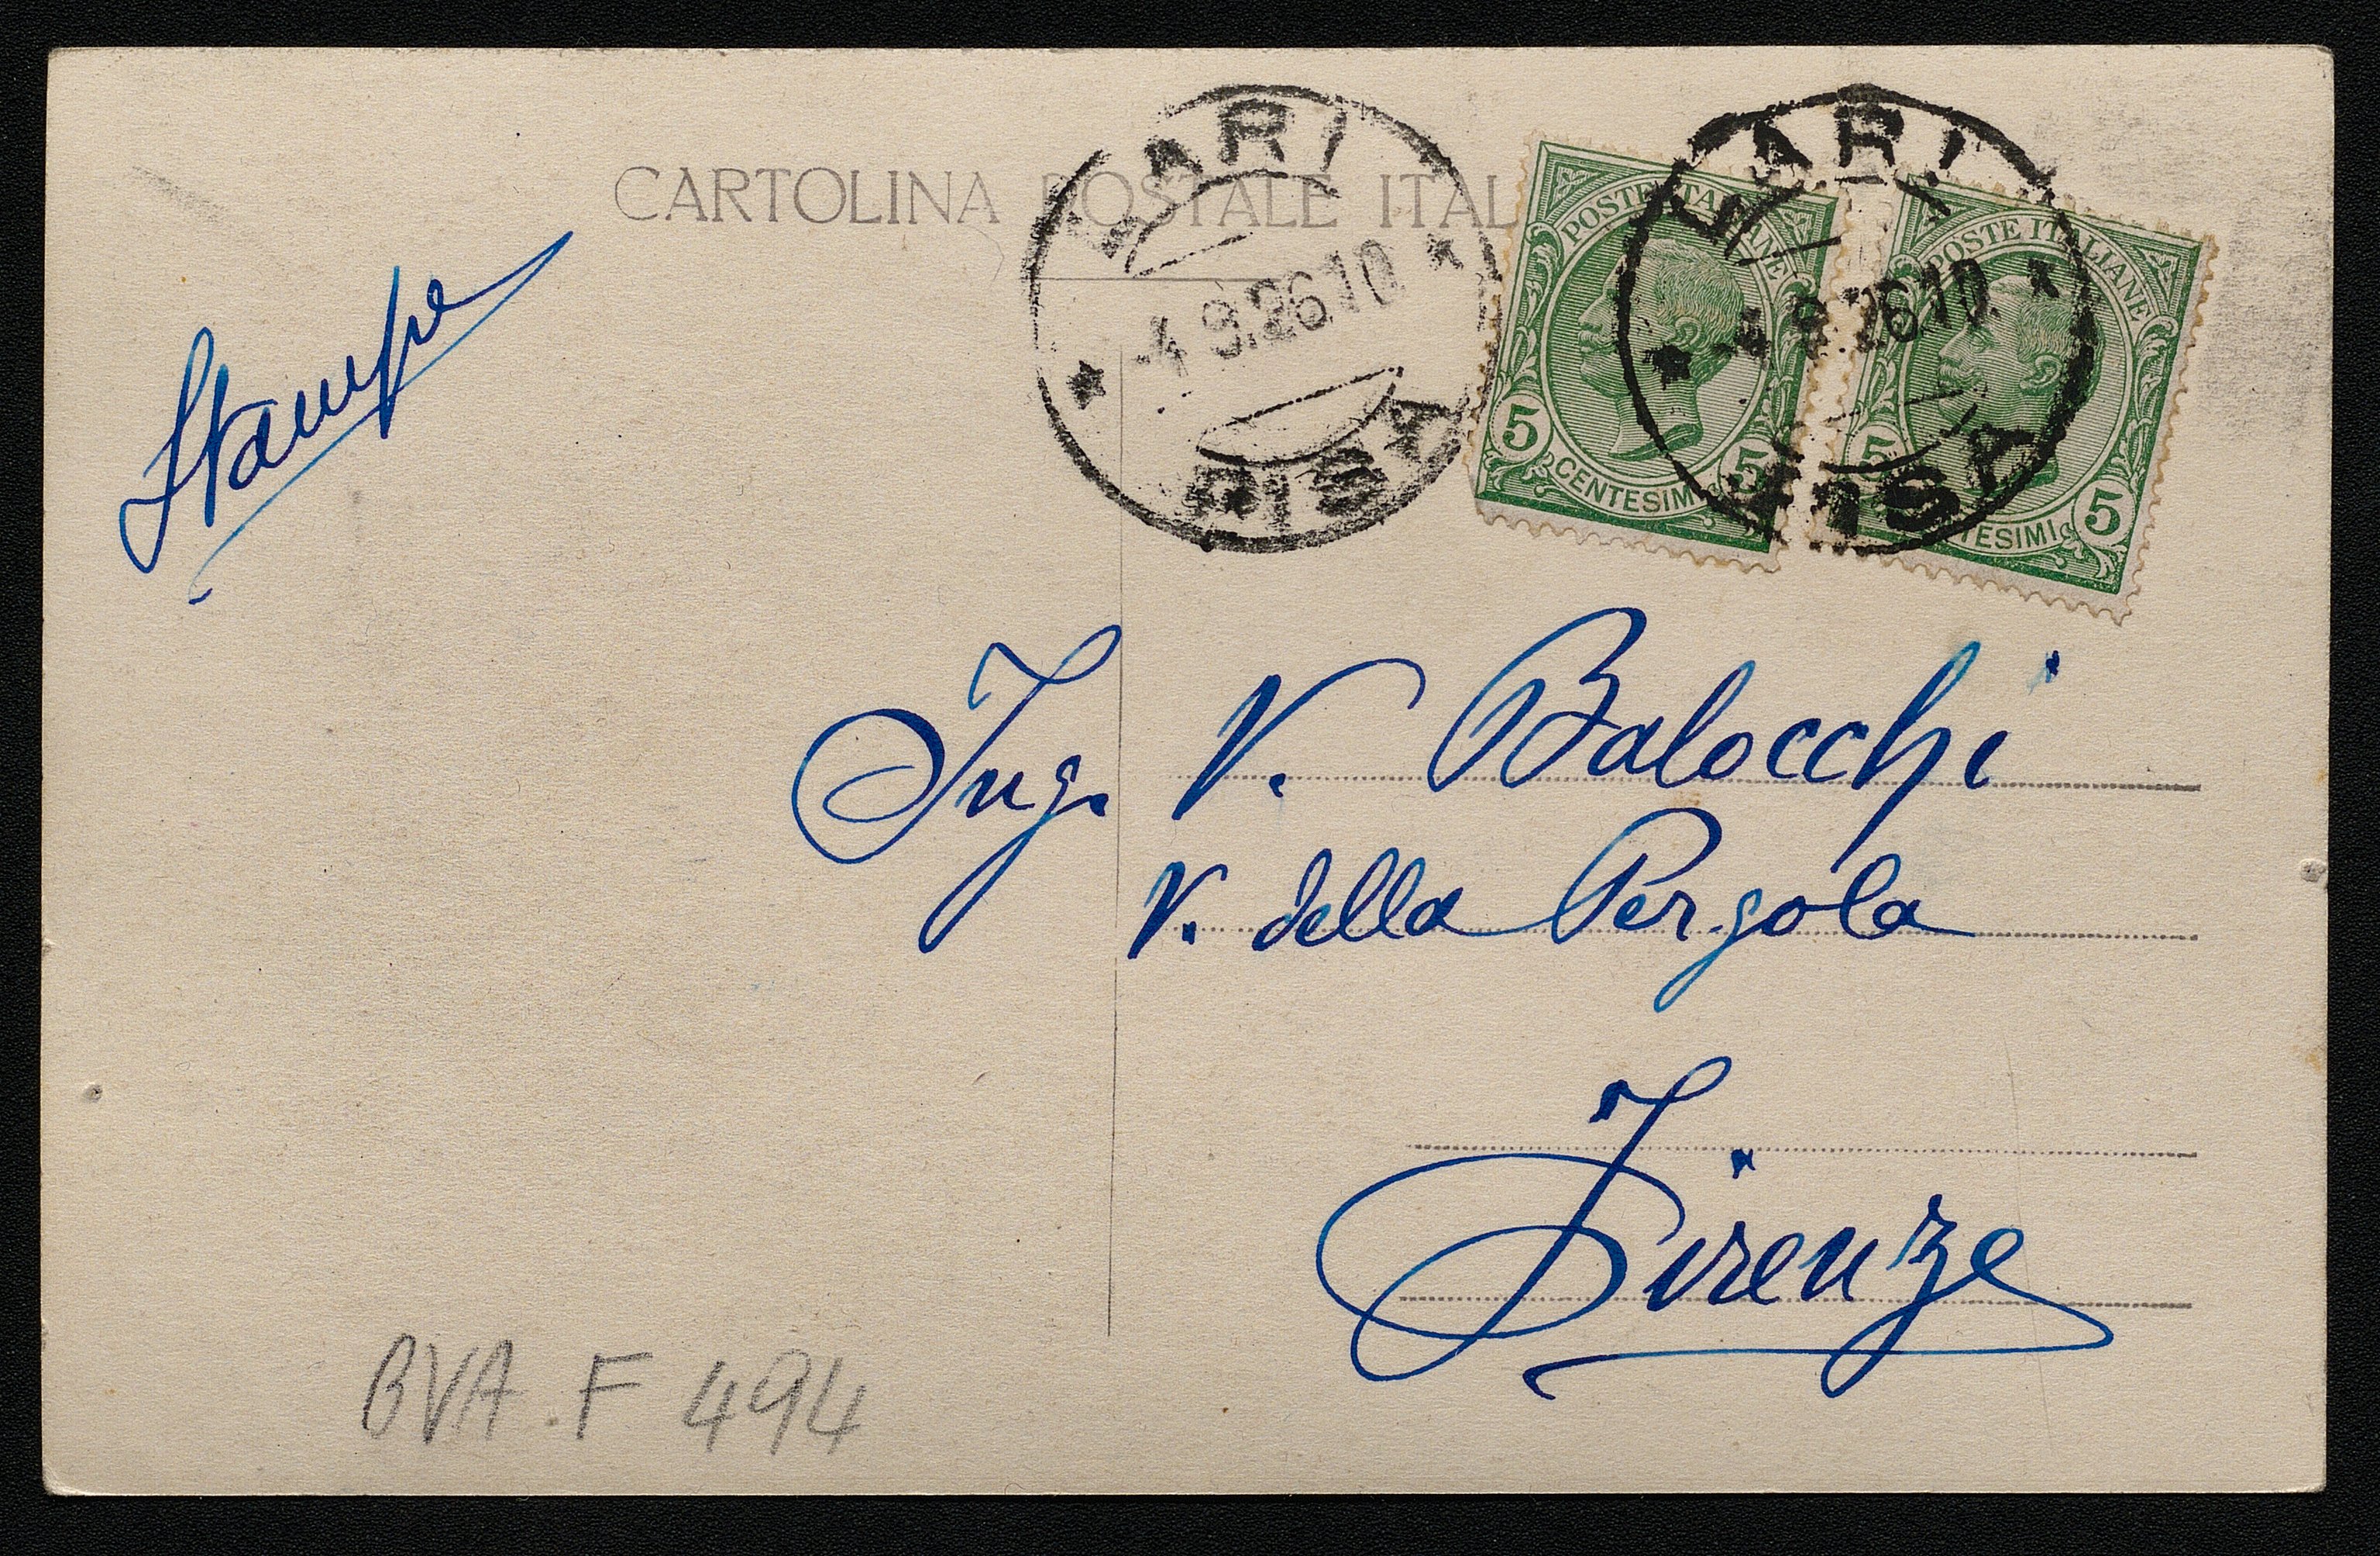 CARTOLINA POSTALE ITAL
LARI
-4.9.26.10
PISA
POSTE ITALIANE
5 CENTESIMI 5
LARI
-4.9.26.10
PISA
POSTE ITALIANE
5 CENTESIMI 5
Stampe
Ing. V. Balocchi
V. della Pergola
Firenze
BVA. F 494